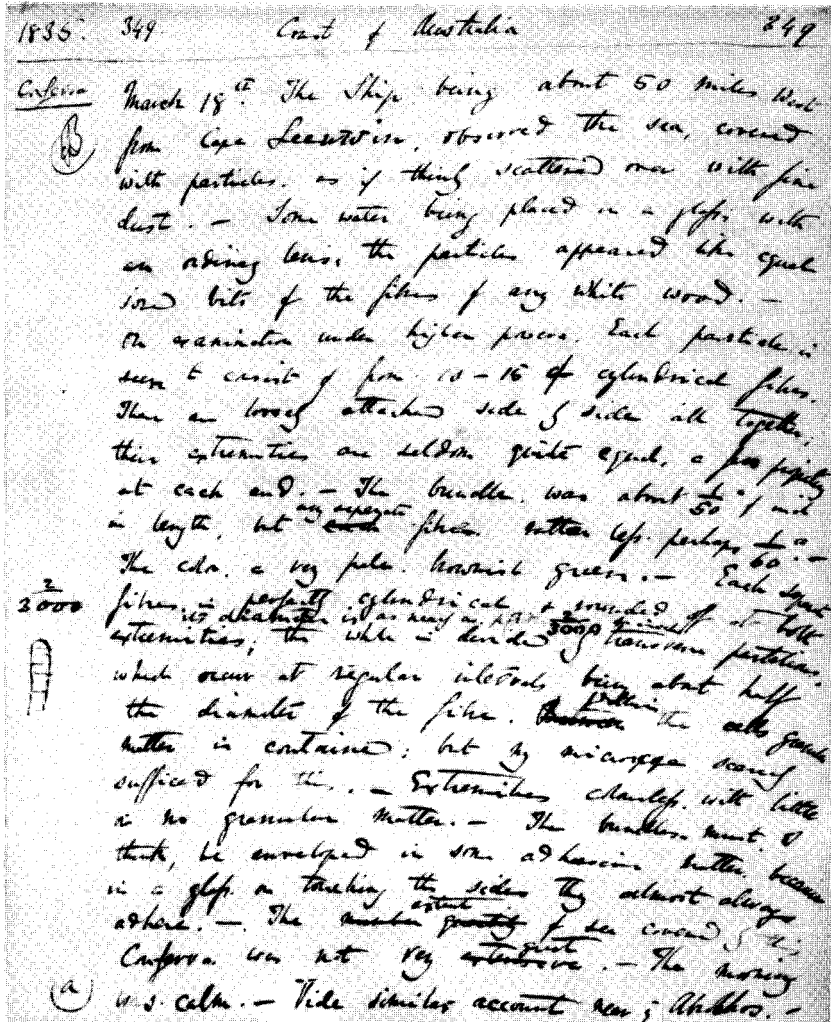 1835. 349. Coast of Australia 349
Conferva March 18th. The Ship being about 50 miles West
from Cape Leeuwin, observed the sea, covered
with particles. as if thinly scattered over with fine
dust. — Some water being placed in a glass with
an ordinary lens, the particles appeared like equal
sized bits of the fibres of any white wood. —
On examination under higher powers. Each particle is
seen to consist of from 10 - 15 of cylindrical fibres.
These are loosely attached side by side all together,
their extremities are seldom quite equal, a few projecting
at each end. — The bundle. was about 1/50" of inch
in length, but any separate each fibre rather less. perhaps 1/60". —
The color. a very pale. brownish green. — Each separate
2/3000 fibre. is perfectly cylindrical & rounded off at both
its diameter is as nearly as 2/3000
extremities; the whole is divided by transverse partitions.
which occur at regular intervals being about half
the diameter of the fibre. within the cells granular
matter is contained; but my microscope scarcely
sufficed for this. — Extremities colourless. with little
or no granular matter. — The bundles must, I
think, be enveloped in some adhesive matter. because
in a glass on touching the sides they almost always
adhere. — The number extent quantity of sea covered by this
Conferva was not very extensive great. — The morning
(a) was calm. — Vide similar account near; Abrolhos. —